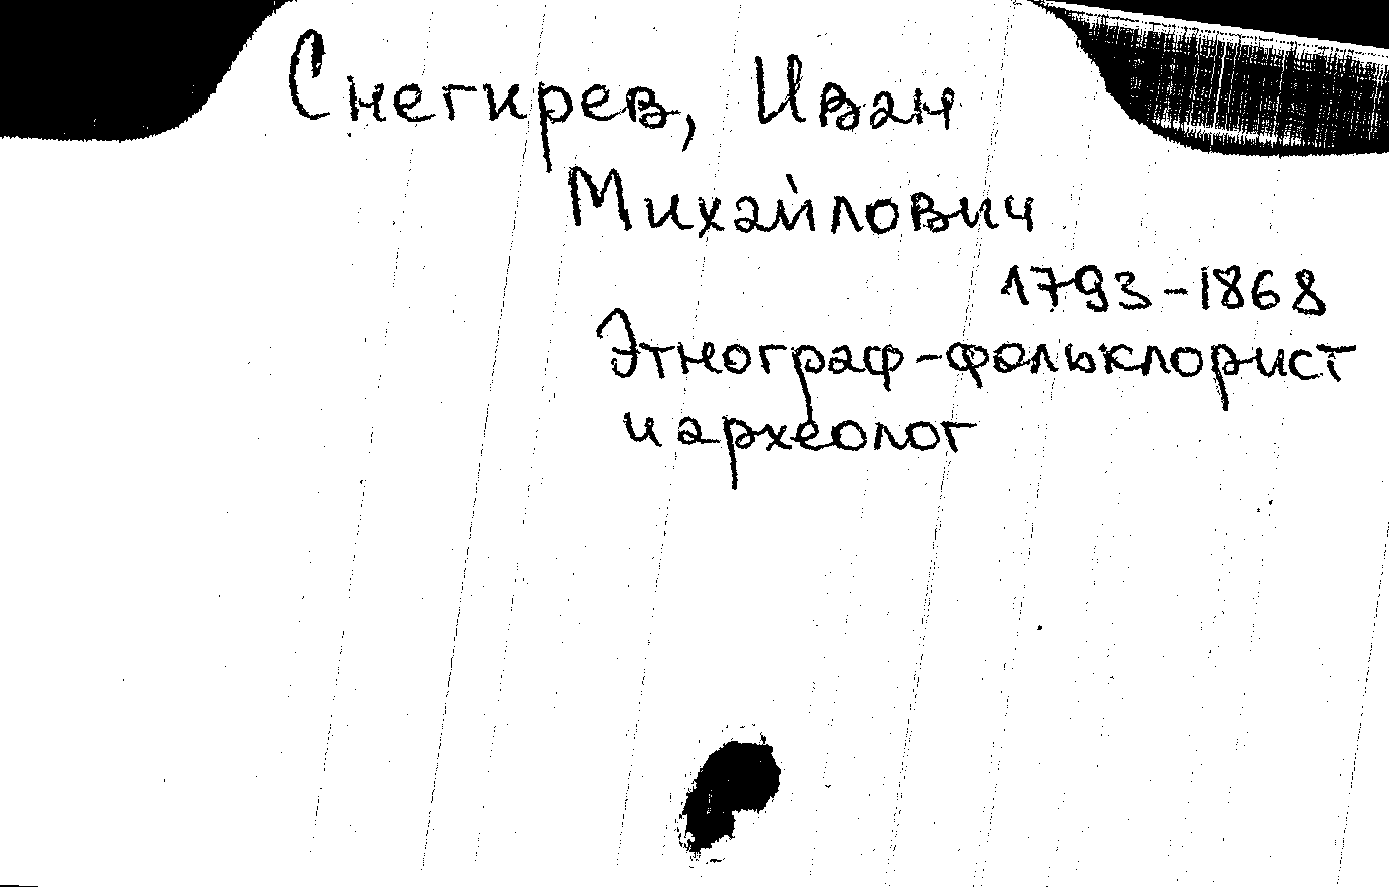 Снегирев, Иван
Михайлович
1793-1868
Этнограф-фольклорист
и археолог